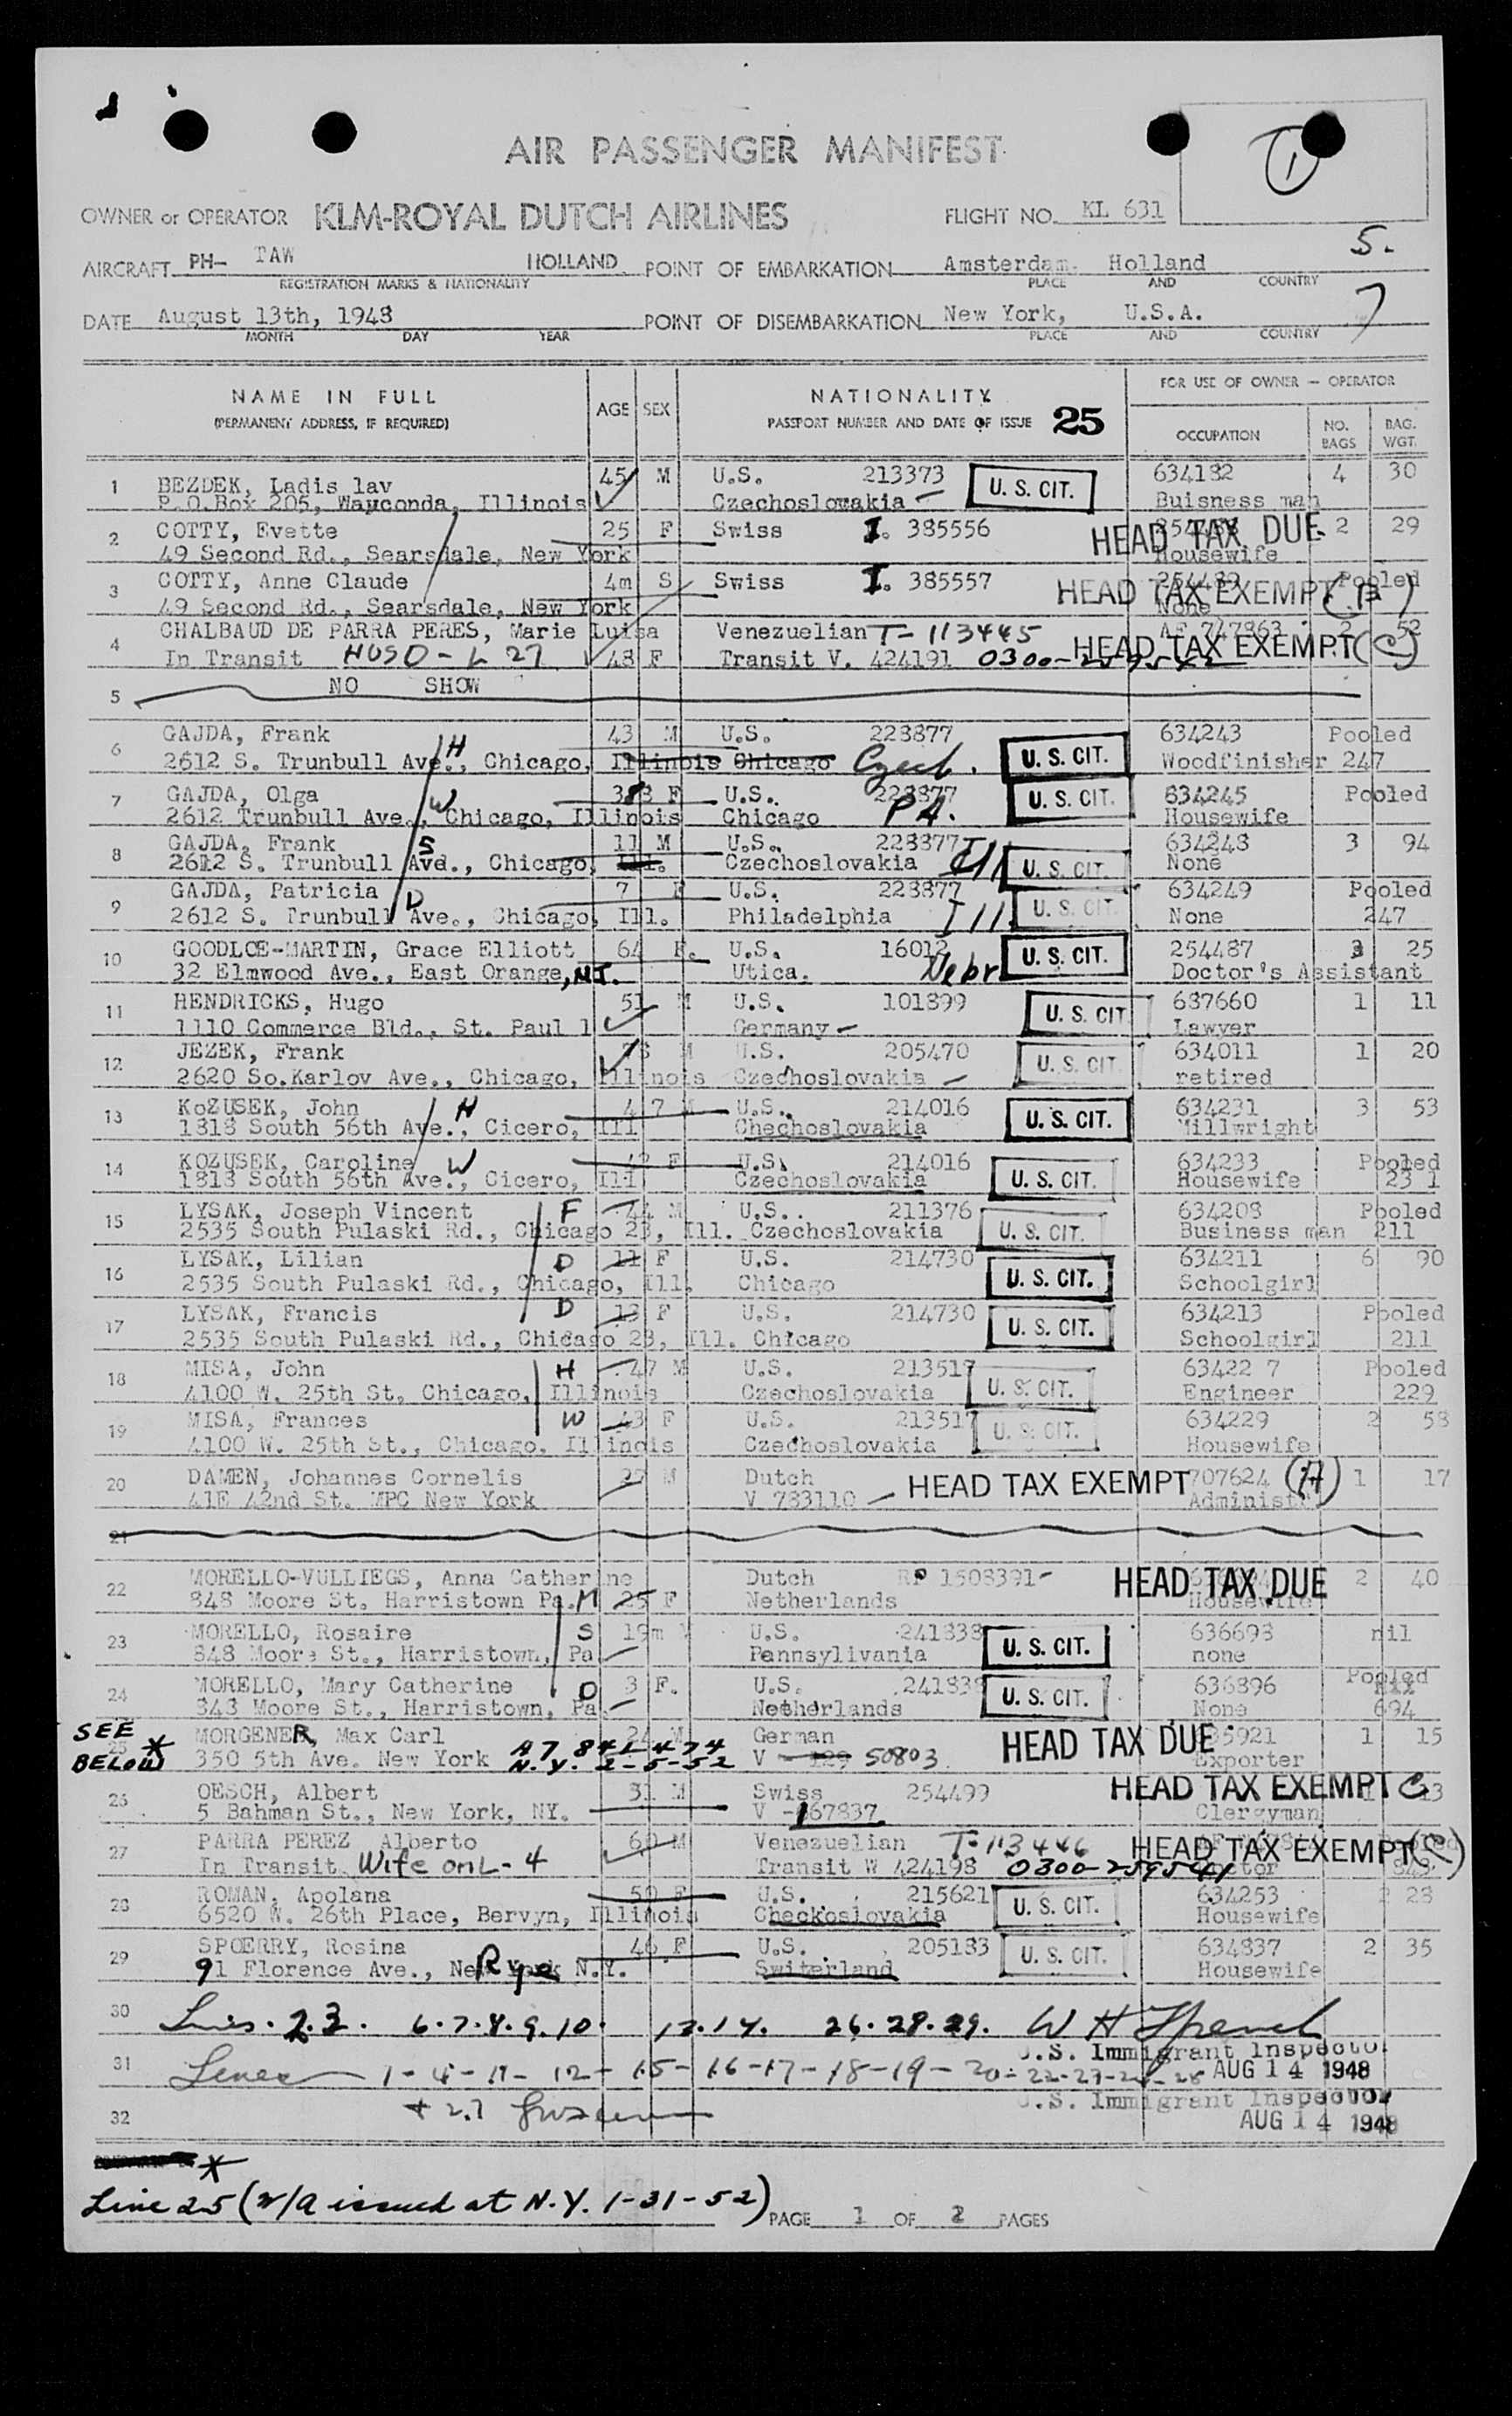 1
AIR PASSENGER MANIFEST
OWNER or OPERATOR KLM-ROYAL DUTCH AIRLINES FLIGHT NO. KL 631
5.
AIRCRAFT PH- TAW HOLLAND POINT OF EMBARKATION Amsterdam Holland
REGISTRATION MARKS & NATIONALITY PLACE AND COUNTRY
7
DATE August 13th, 1948 POINT OF DISEMBARKATION New York, U.S.A.
MONTH DAY YEAR PLACE AND COUNTRY
NAME IN FULL AGE SEX NATIONALITY FOR USE OF OWNER — OPERATOR
(PERMANENT ADDRESS, IF REQUIRED) PASSPORT NUMBER AND DATE OF ISSUE 25 OCCUPATION NO. BAGS BAG. WGT.
1 BEZDEK, Ladis lav 45 M U.S. 213373 U. S. CIT. 634182 4 30
P.O.Box 205, Wauconda, Illinois Czechoslowakia Buisness man
2 COTTY, Evette 25 F Swiss I. 385556 HEAD TAX DUE 2 29
49 Second Rd., Searsdale, New York Housewife
3 COTTY, Anne Claude 4m S Swiss I. 385557 HEAD TAX EXEMPT Pooled
49 Second Rd., Searsdale, New York None
4 CHALBAUD DE PARRA PERES, Marie Luisa Venezuelian T-113445 AF 747863 2 52
In Transit HUSD-L 27 48 F Transit V. 424191 HEAD TAX EXEMPT (C)
5 NO SHOW
6 GAJDA, Frank 43 M U.S. 223877 634243 Pooled
2612 S. Trunbull Ave., H Chicago, Illinois Chicago Czech. U. S. CIT. Woodfinisher 247
7 GAJDA, Olga 38 F U.S. 223877 634245 Pooled
2612 Trunbull Ave., W Chicago, Illinois Chicago PA. U. S. CIT. Housewife
8 GAJDA, Frank S 11 M U.S. 223877 634248 3 94
2612 S. Trunbull Avd., Chicago, Ill. Czechoslovakia Ill U. S. CIT. None
9 GAJDA, Patricia D 7 F U.S. 223877 634249 Pooled
2612 S. Trunbull Ave., Chicago, Ill. Philadelphia Ill. U. S. CIT. None 247
10 GOODLOE-MARTIN, Grace Elliott 64 F. U.S. 16012 254487 3 25
32 Elmwood Ave., East Orange, N.J. Utica. Nebr U. S. CIT. Doctor's Assistant
11 HENDRICKS, Hugo 51 M U.S. 101899 687660 1 11
1110 Commerce Bld., St. Paul 1 Germany U. S. CIT Lawyer
12 JEZEK, Frank M U.S. 205470 634011 1 20
2620 So.Karlov Ave., Chicago, Illinois Czechoslovakia U. S. CIT. retired
13 KoZUSEK, John 47 M U.S. 214016 634231 3 53
1818 South 56th Ave., H Cicero, Ill Chechoslovakia U. S. CIT. Millwright
14 KOZUSEK, Caroline W F U.S. 214016 634233 Pooled
1818 South 56th Ave., Cicero, Ill Czechoslovakia U. S. CIT. Housewife 23 1
15 LYSAK, Joseph Vincent F 44 M U.S. 211376 634208 Pooled
2535 South Pulaski Rd., Chicago 23, Ill. Czechoslovakia U. S. CIT. Business man 211
16 LYSAK, Lilian D 11 F U.S. 214730 634211 6 90
2535 South Pulaski Rd., Chicago, Ill. Chicago U. S. CIT. Schoolgirl
17 LYSAK, Francis D 13 F U.S. 214730 634213 Pooled
2535 South Pulaski Rd., Chicago 23, Ill. Chicago U. S. CIT. Schoolgirl 211
18 MISA, John H 47 M U.S. 213517 63422 7 Pooled
4100 W. 25th St, Chicago, Illinois Czechoslovakia U. S. CIT. Engineer 229
19 MISA, Frances W 43 F U.S. 213517 634229 2 58
4100 W. 25th St., Chicago, Illinois Czechoslovakia U. S. CIT. Housewife
20 DAMEN, Johannes Cornelis M Dutch HEAD TAX EXEMPT 707624 (A) 1 17
41E 42nd St. MPC New York V 783110
21
22 MORELLO-VULLIEGS, Anna Catherine Dutch RP 1508391 HEAD TAX DUE 2 40
848 Moore St. Harristown Pa. M 25 F Netherlands Housewife
23 MORELLO, Rosaire S 19m U.S. 241838 636698 nil
848 Moore St., Harristown, Pa Pennsylivania U. S. CIT. none
24 MORELLO, Mary Catherine D 3 F. U.S. 241838 636896 Pooled
848 Moore St., Harristown, Pa. Netherlands U. S. CIT. None 694
SEE BELOW * 25 MORGENER, Max Carl 24 M German HEAD TAX DUE 1 15
350 5th Ave. New York A7 841474 N.Y. 2-5-52 V 50803 Exporter
26 OESCH, Albert 31 M Swiss 254499 HEAD TAX EXEMPT C
5 Bahman St., New York, NY. V -167837 Clergyman
27 PARRA PEREZ Alberto 60 M Venezuelian T-113446 HEAD TAX EXEMPT (C)
In Transit Wife on L-4 Transit W 424198 0300-259541
28 ROMAN, Apolana 50 F U.S. 215621 634253 2 23
6520 W. 26th Place, Bervyn, Illinois Checkoslovakia U. S. CIT. Housewife
29 SPOERRY, Rosina 46 F U.S. 205183 634837 2 35
91 Florence Ave., New York Rye N.Y. Switerland U. S. CIT. Housewife
30 Lines. 2.3. 6.7.8.9.10. 13.14. 26.28.29. W H
U.S. Immigrant Inspector
31 Lines 1-4-11-12-15-16-17-18-19-20-22-23-24-25 AUG 14 1948
U.S. Immigrant Inspector
32 + 27 AUG 14 1948
*
Line 25 (v/a issued at N.Y. 1-31-52) PAGE 1 OF 2 PAGES